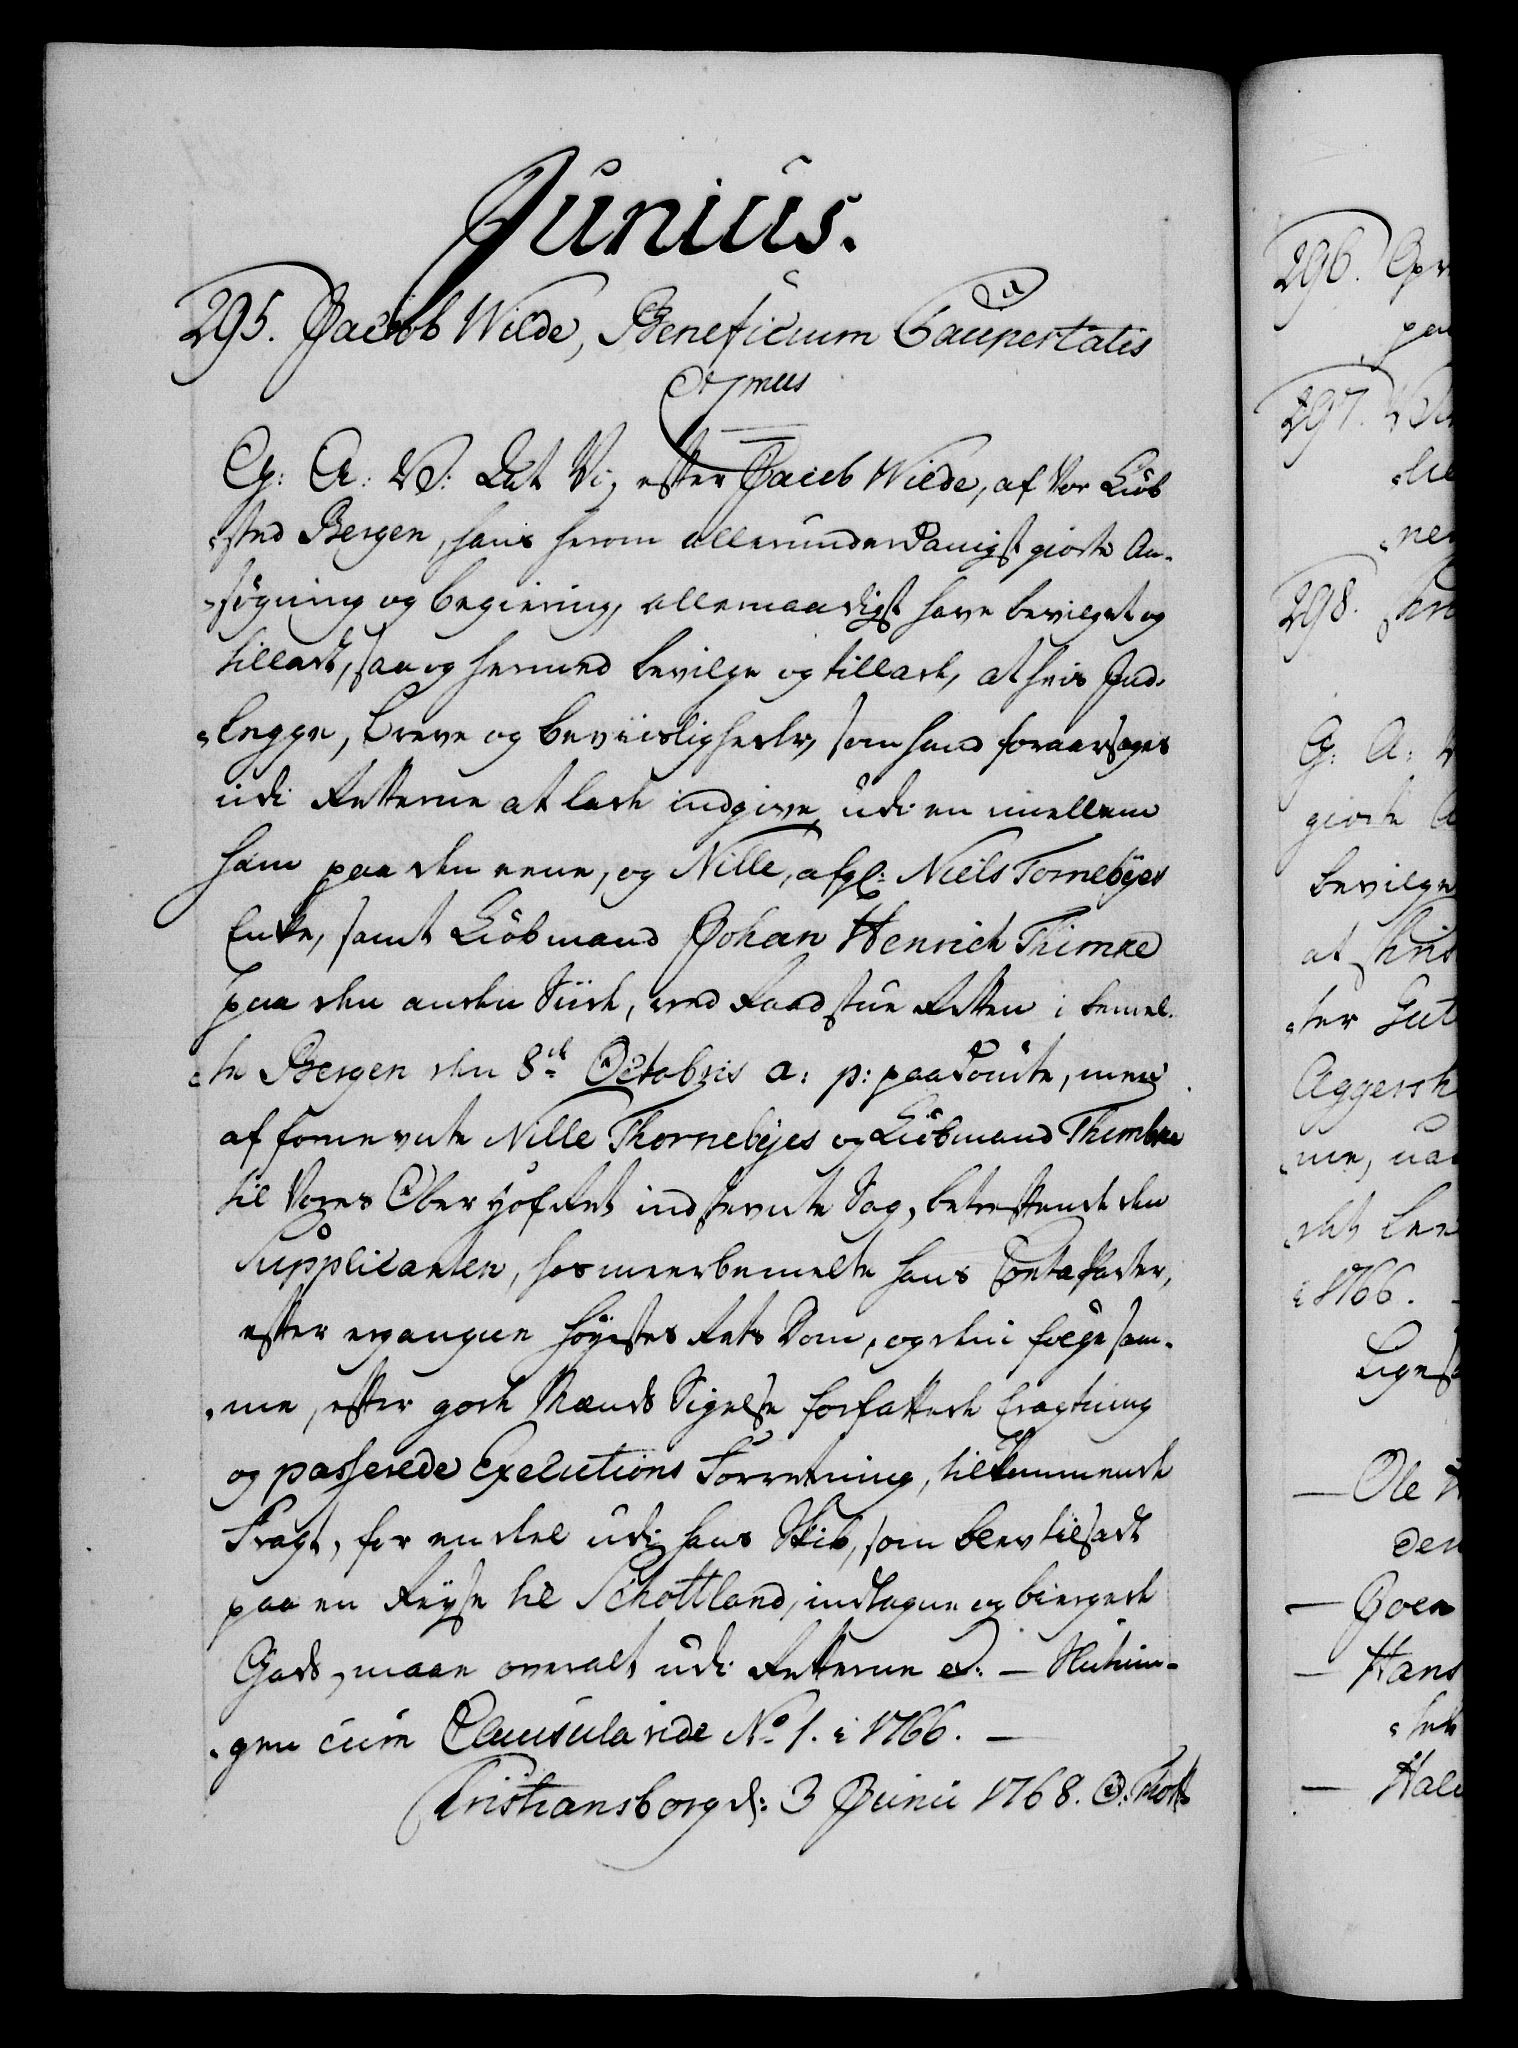 Junius.
295. Jacob Wilde, Beneficium Paupertatis
G: A: V: Att Vi, efter Jacob Wilde, af Vor Kiöb
sted Bergen, hans herom allerunderdanigst giorte An-
søgning og begiering, allernaadigst have bevilget og
tilladt, saa og hermed bevilge og tillade, at hvis Ind-
legge, breve og beviisligheder, som hand foraarsages
udi Retterne at lade indgive, udi en imellem
ham paa den eene, og Nille, afg: Niels Tornebÿes
Enke, samt Kiöbmand Johan Henrich Thimke
paa den anden Siide, ved Raadstue Retten i bemel-
te Bergen den 8de Octobris a: p: paadömte, men
af fornevnte Nille Thornebÿes og Kiöbmand Thimke
til Vores Ober Hof Ret indstevnte Sag, betreffende den
Supplicanten, hos meerbemelte hans Contraparter,
efter ergangne Høyeste Rets Dom, og den i følge sam-
me, efter gode Mænds Sigelse forfattede Eragtning
og passerede Executions Forretning, tilkommende
Fragt, for en deel udi hans Skib, som blev tilsadt
paa en Reyse til Schottland, indtagne og biergede
Gods, maae overalt udi Retterne &: — Slutnin-
gen cum Clausula vide No 1. i 1766. —
Christiansborg d: 3 Junii 1768. O: Thott
296.
297.
298.
G: A:
giorte
bevilge
at
1766.
Ole
Hans